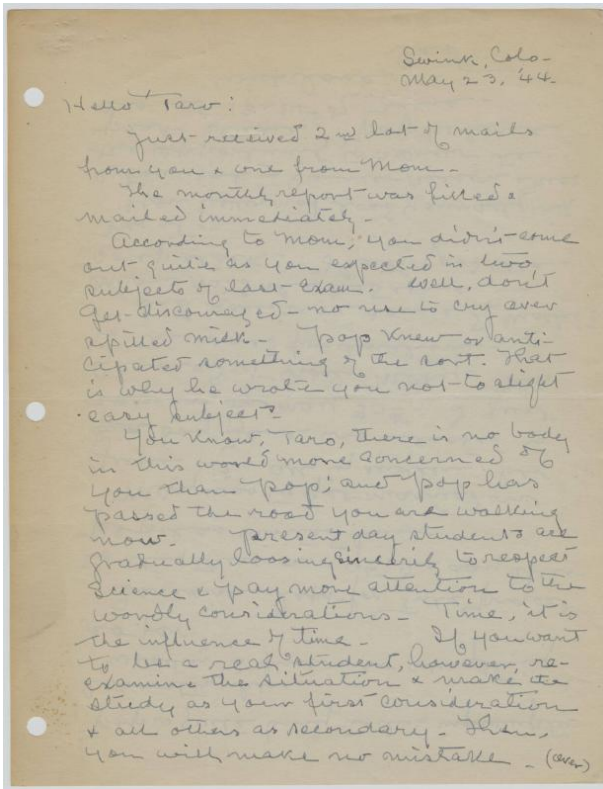 Swink, Colo-
May 23, '44-
Hello Taro:
Just received 2nd lot of mails
from you & one from Mom-
The monthly report was filled &
mailed immediately-
According to Mom, you didn't come
out quite as you expected in two
subjects of last exam. Well, don't
get discouraged- no use to cry over
spilled milk- Pop knew or anti-
cipated something of the sort. That
is why he wrote you not to slight
easy subjects-
You know, Taro, there is no body
in this world more concerned of
you than Pop; and Pop has
passed the road you are walking
now. Present day students are
gradually loosing sincerity to respect
science & pay more attention to the
wordly considerations- Time, it is
the influence of time- If you want
to be a real student, however, re-
examine the situation & make the
study as your first consideration
& all others as secondary- Then,
you will make no mistake- (over)